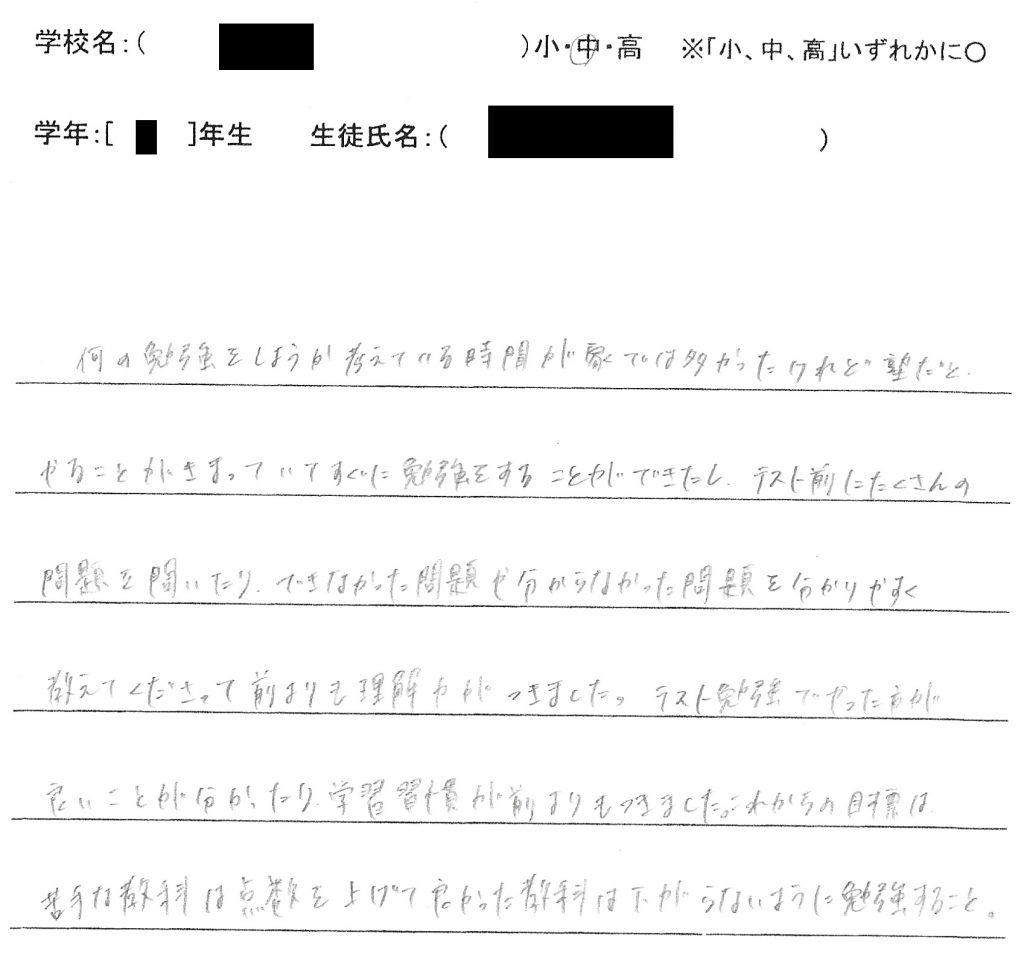 学校名：(　　　)小・中・高　※「小、中、高」いずれかに○
学年：[　]年生　生徒氏名：(　　　)
何の勉強をしようか考えている時間が家では多かったけれど塾だと、
やることがきまっていてすぐに勉強をすることができたし、テスト前にたくさんの
問題を聞いたり、できなかった問題や分からなかった問題を分かりやすく
教えてくださって前よりも理解力がつきました。テスト勉強でやった方が
良いことが分かったり、学習習慣が前よりもつきました。これからの目標は
苦手な教科は点数を上げて良かった教科は下がらないように勉強すること。